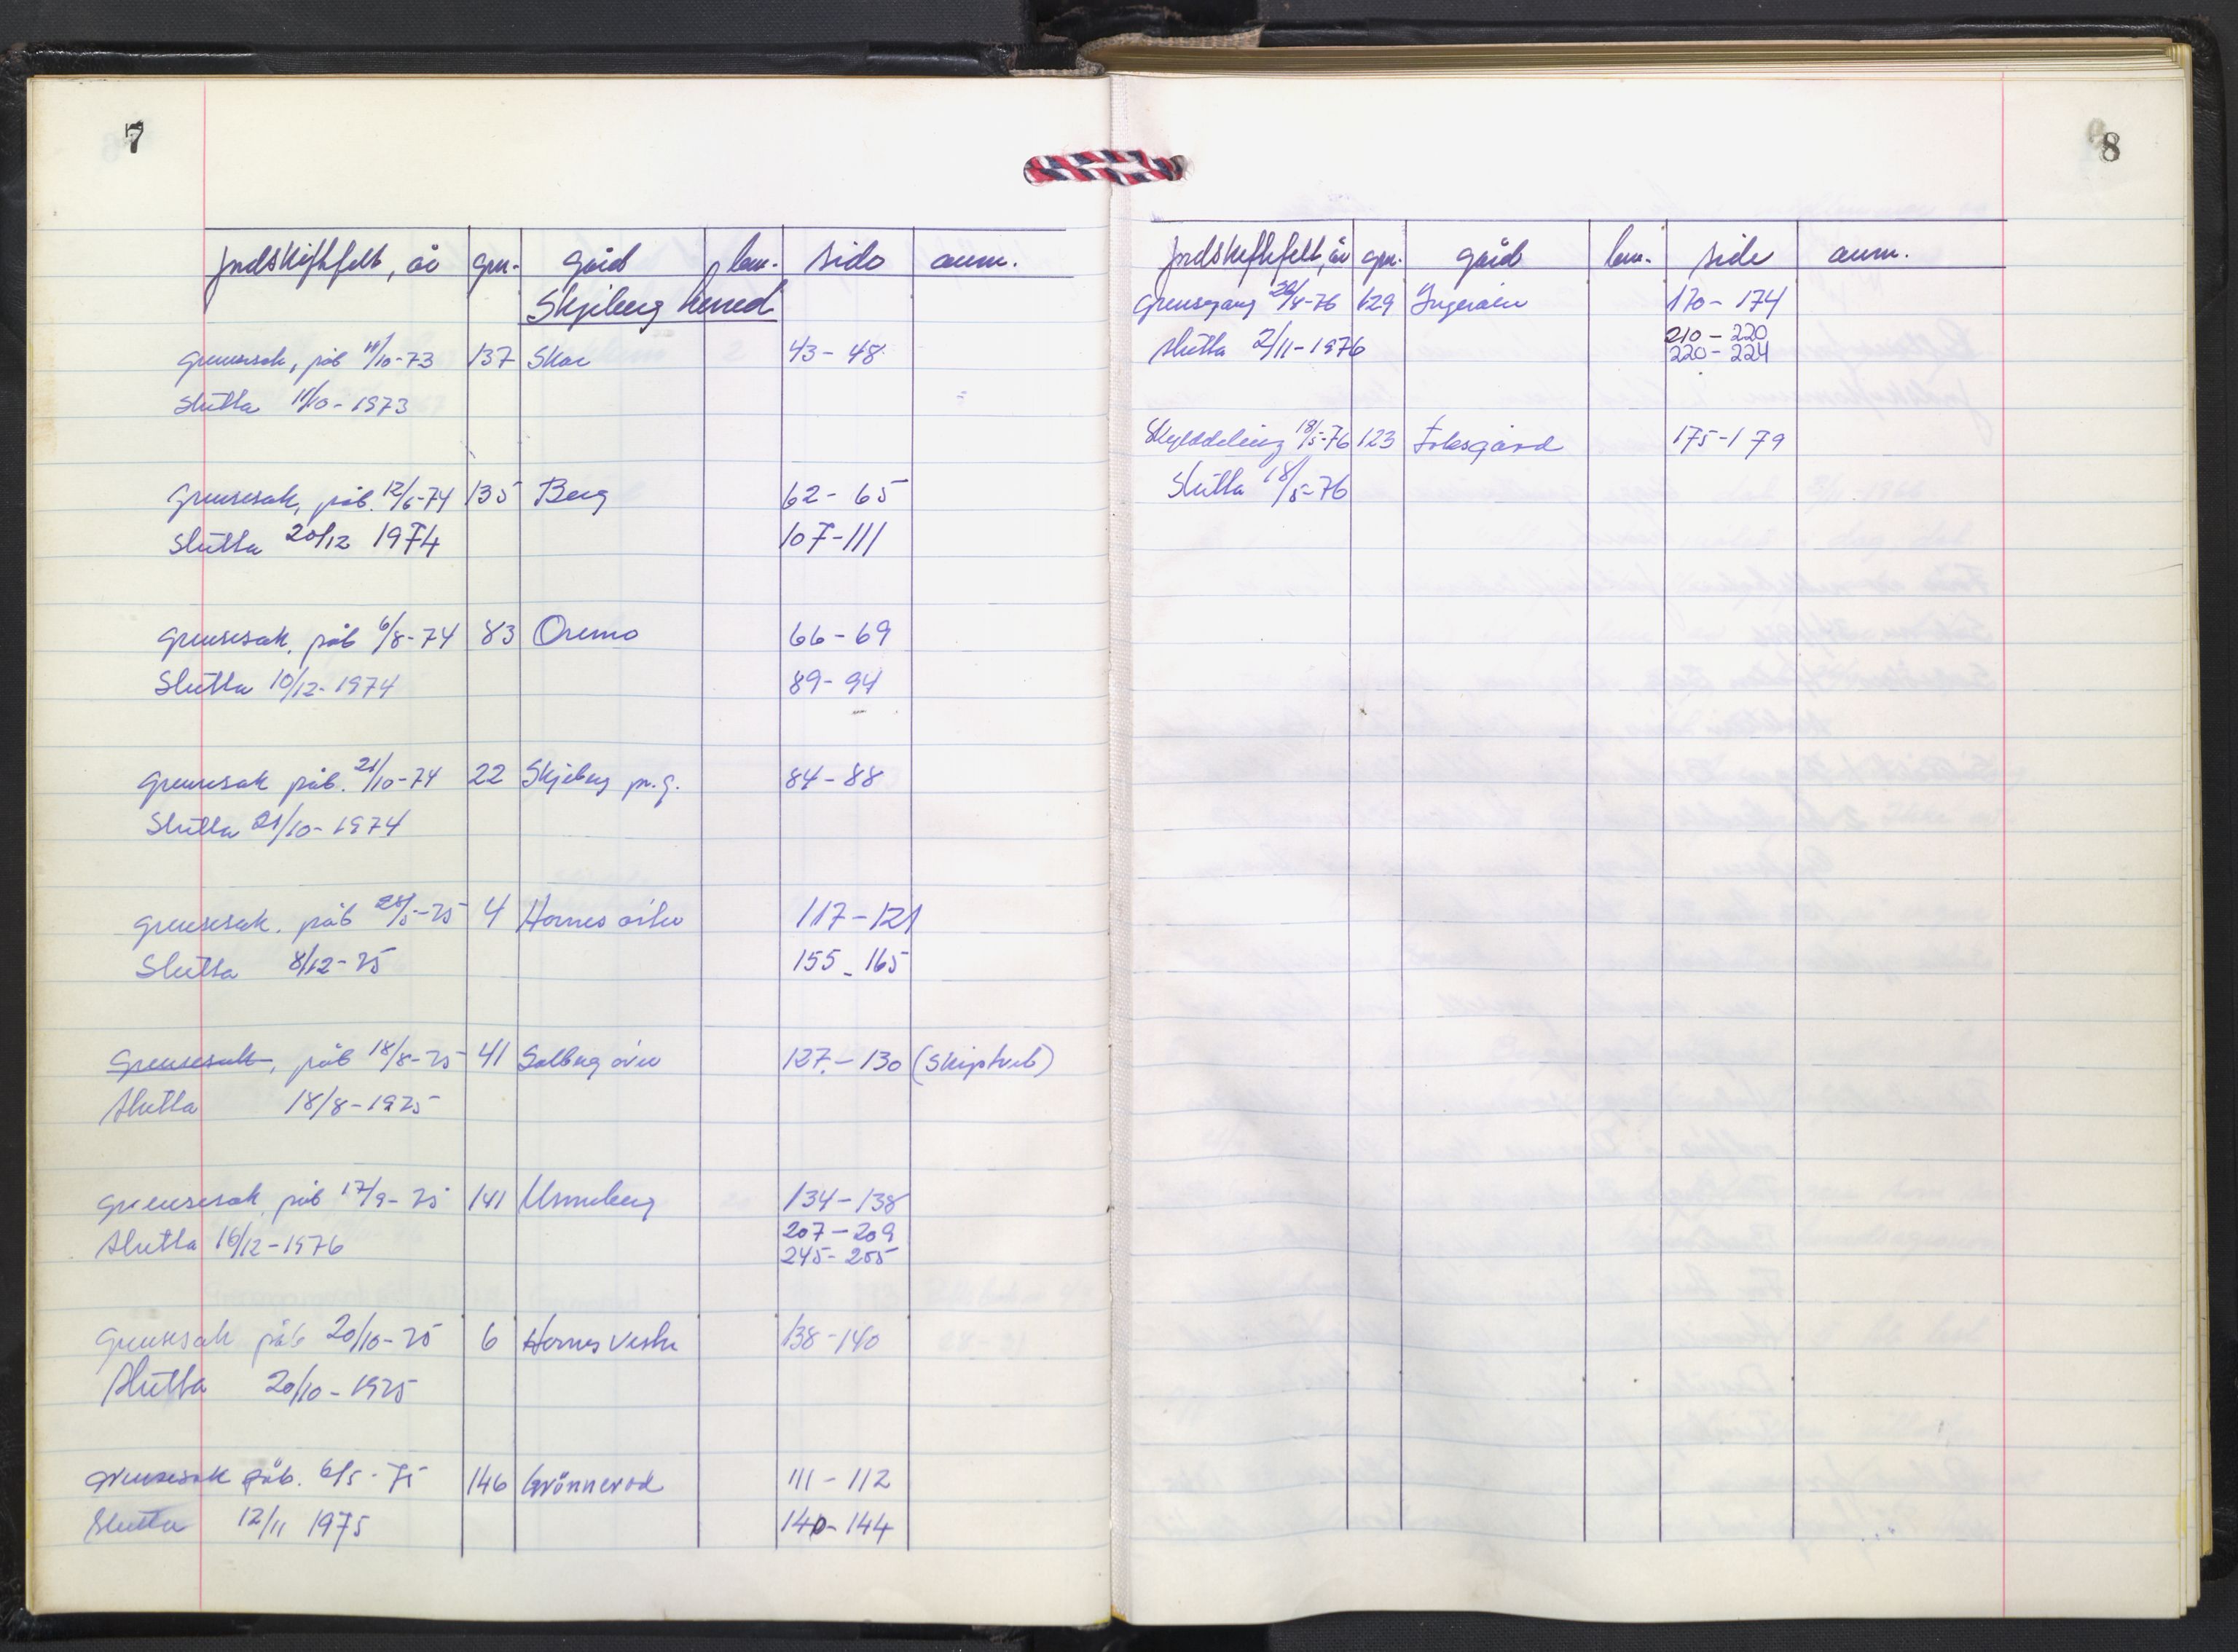 7
Jordskiftfelt, år gnr. gård lnr. side anm.
Skjeberg herred
Grensesak, påb 11/10-73 137 Skac 43-48
Slutta 11/10-1973
Grensesak, påb. 12/6-74 135 Berg 62-65
Slutta 20/12 1974 107-111
Grensesak, påb 6/8-74 83 Oremo 66-69
Slutta 10/12-1974 89-94
Grensesak påb. 21/10-74 22 Skjeberg pr.g. 84-88
Slutta 21/10-1974
Grensesak. påb 28/5-75 4 Hornes østre 117-121
Slutta 8/12-75 155-165
Grensesak, påb 18/8-75 41 Solberg övre 127.-130 (Skiptvet)
Slutta 18/8-1975
Grensesak, påb 17/9-75 141 Ulmeberg 134-138
Slutta 16/12-1976 207-209
245-255
Grensesak påb 20/10-75 6 Hornes Vestre 138-140
Slutta 20/10-1975
Grensesak påb. 6/5-75 146 Grönnerod 111-112
Slutta 12/11 1975 140-144
8
Jordskiftefelt, år gnr. gård lnr. side anm.
Grensegang /4-76 129 Ingeråsen 170-174
Slutta 2/11-1976 210-220
220-224
Skylddeling 18/5-76 123 175-179
Slutta 18/5-76